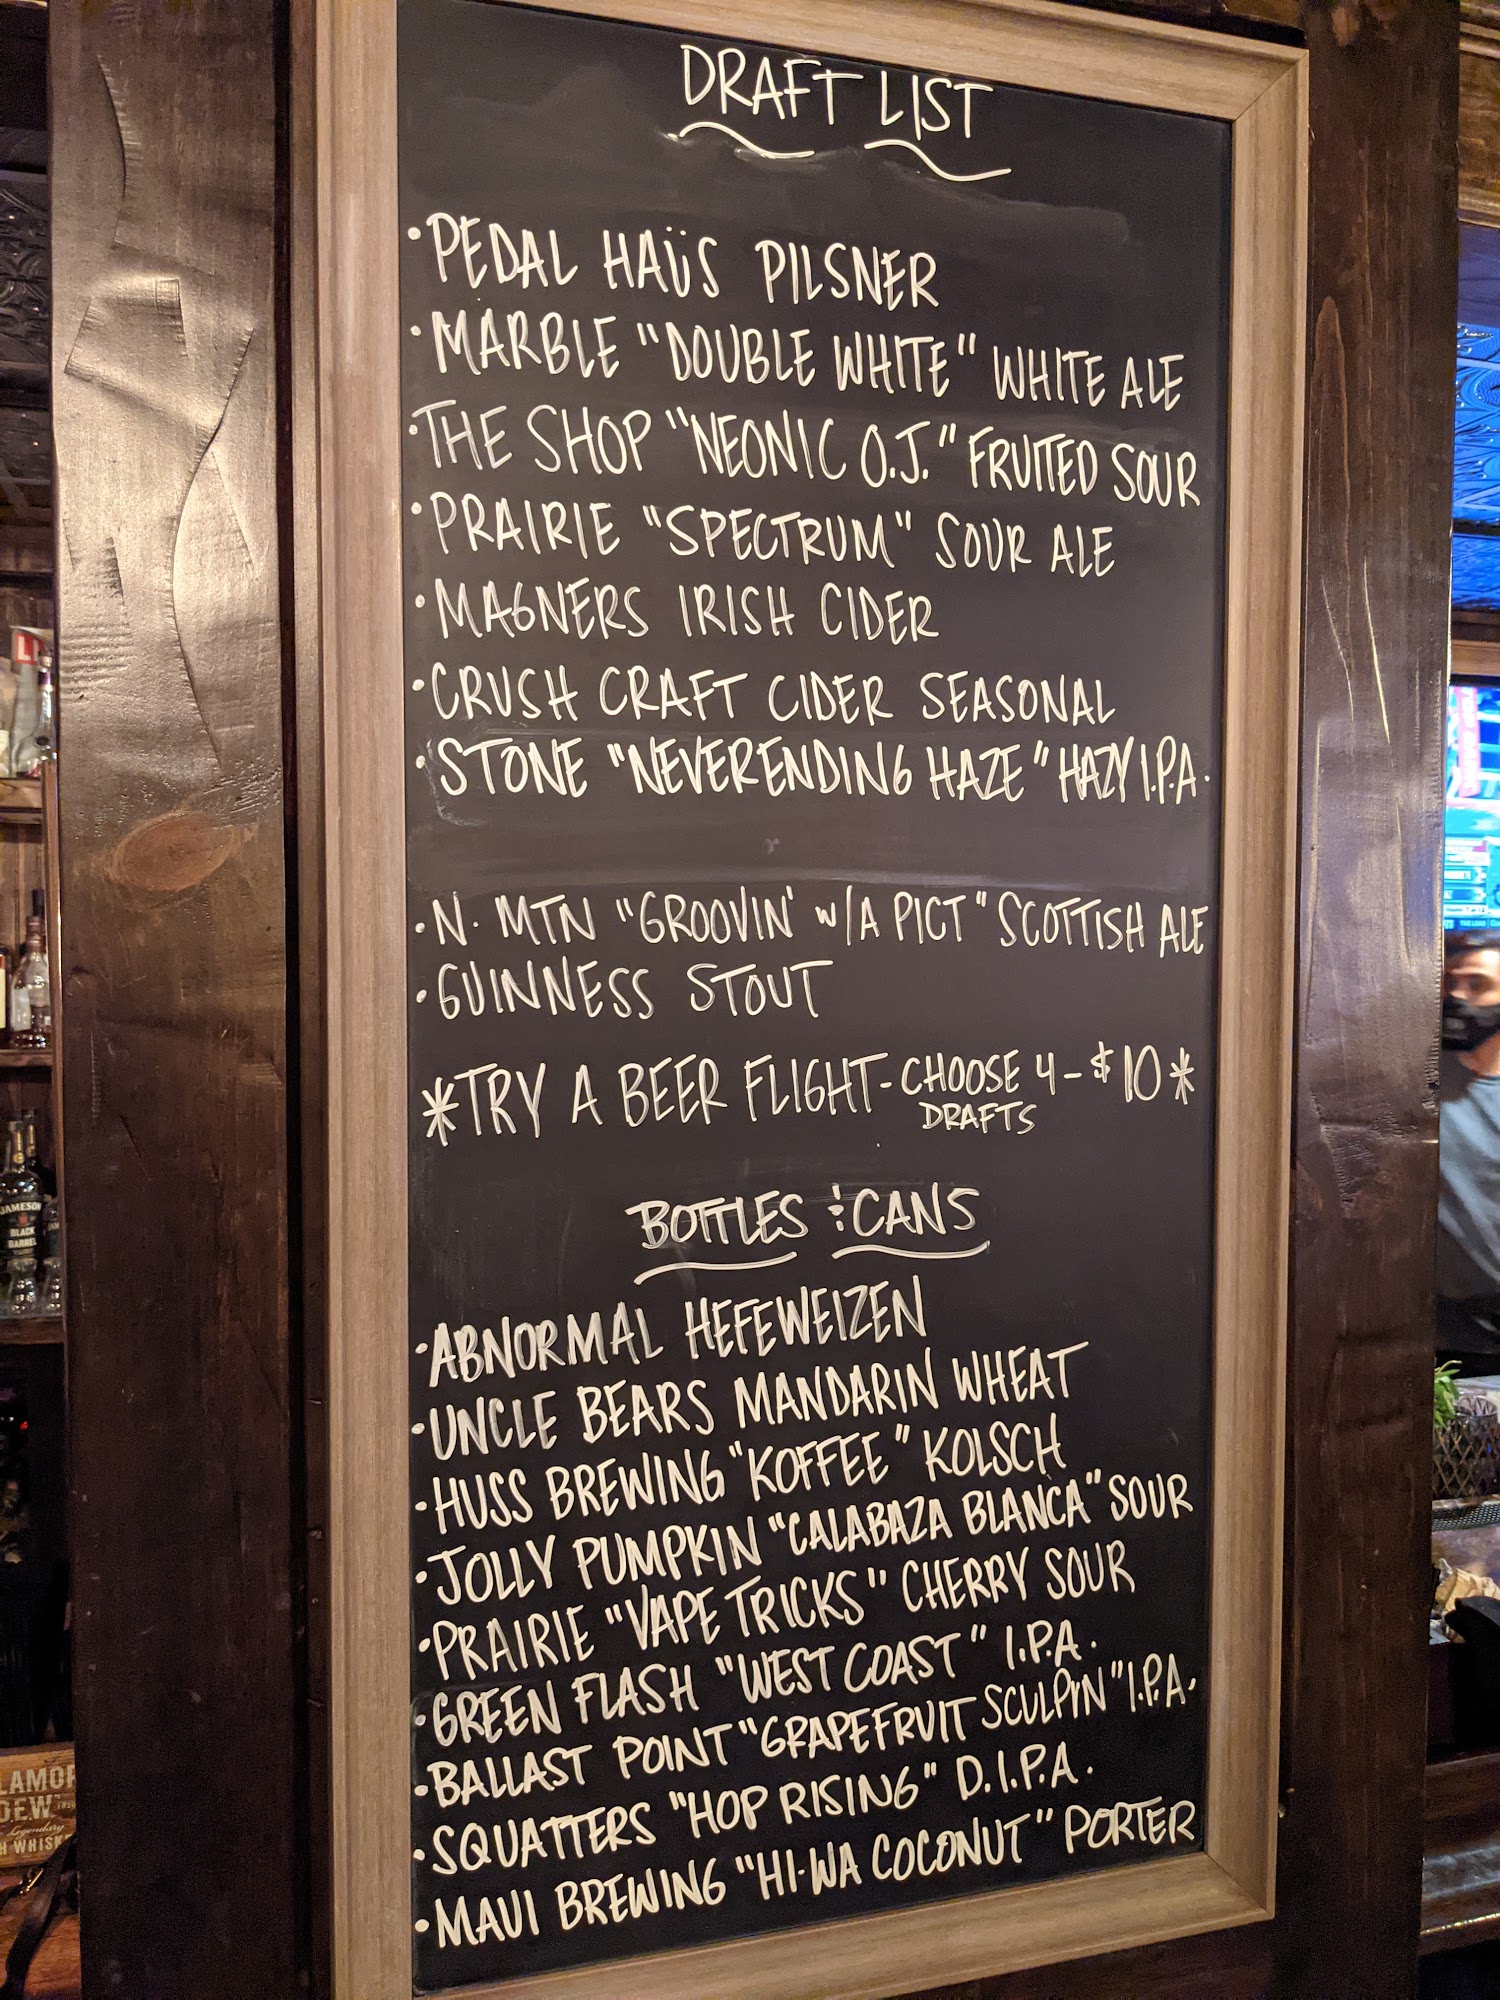 DRAFT LIST
• PEDAL HAÜS PILSNER
• MARBLE "DOUBLE WHITE" WHITE ALE
• THE SHOP "NEONIC O.J." FRUITED SOUR
• PRAIRIE "SPECTRUM" SOUR ALE
• MAGNERS IRISH CIDER
• CRUSH CRAFT CIDER SEASONAL
• STONE "NEVERENDING HAZE" HAZY I.P.A.
• N. MTN "GROOVIN' w/A PICT" SCOTTISH ALE
• GUINNESS STOUT
*TRY A BEER FLIGHT - CHOOSE 4 - $10*
DRAFTS
BOTTLES & CANS
• ABNORMAL HEFEWEIZEN
• UNCLE BEARS MANDARIN WHEAT
• HUSS BREWING "KOFFEE" KOLSCH
• JOLLY PUMPKIN "CALABAZA BLANCA" SOUR
• PRAIRIE "VAPE TRICKS" CHERRY SOUR
• GREEN FLASH "WEST COAST" I.P.A.
• BALLAST POINT "GRAPEFRUIT SCULPIN" I.P.A.
• SQUATTERS "HOP RISING" D.I.P.A.
• MAUI BREWING "HI-WA COCONUT" PORTER
JAMESON
BLACK
BARREL
LAMOR
DEW
Legendary
H WHISK